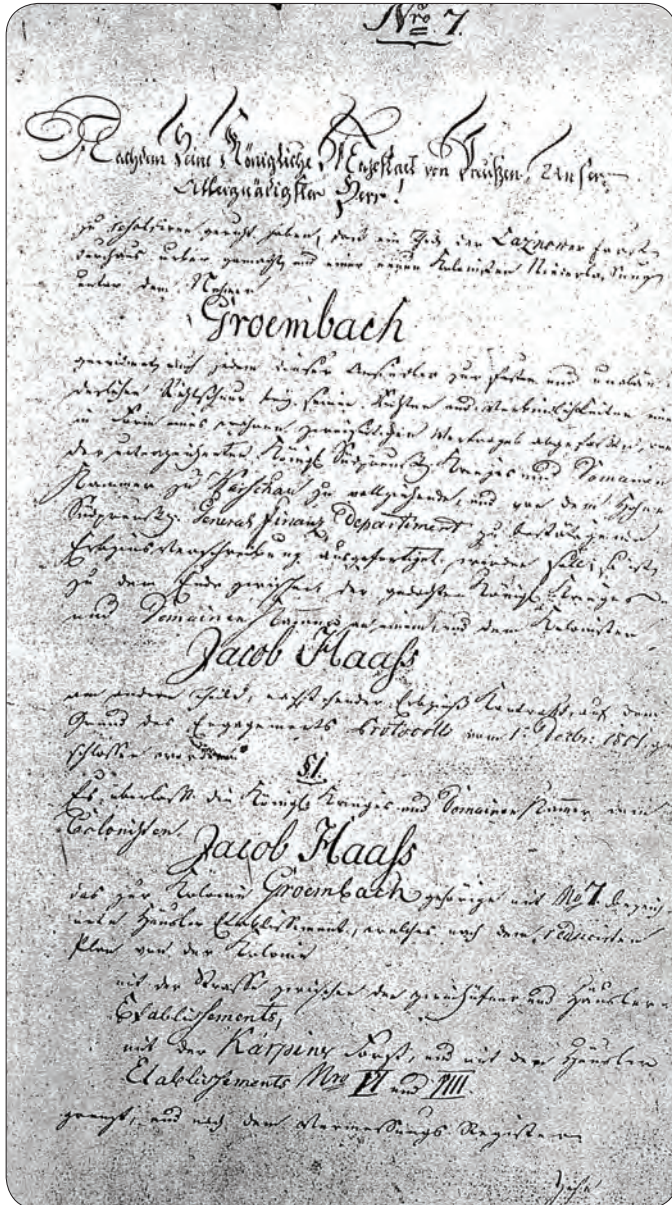 Nro 7.
Nachdem Seine Königliche Majestaet von Preußen, Unser
Allergnädigster Herr!
zu resolviren geruht haben, daß ein Theil der Laznower Forst
durchaus urbar gemacht und einer neuen Kolonisten Niederlassung
unter dem Nahmen
Groembach
jedem dieser Ansiedler zur festen und unabän
derlichen Richtschnur seiner Rechten und Verbindlichkeiten
in Form eines Vertrages
der unterzeichneten Königl. Südpreuß. Krieges und Domainen
Kammer zu Warschau zu vollziehende, und von dem Hohen
Südpreuß. General Finanz Departement zu bestätigende
Erbzinsverschreibung ausgefertiget werden soll; so ist
zu dem Ende zwischen der gedachten Königl. Krieges
und Domainen Kammer an einem, und dem Kolonisten
Jacob Haass
am andern Theil, Erbzins Kontrakt, auf dem
Grund des Engagements Protocolls vom 1. 1801, ge
schlossen worden
§1.
Es überlässt die Königl. Krieges und Domainen Kammer dem
Colonisten
Jacob Haass
das zur Kolonie Groembach gehörige mit No 7. bezeich
nete Häusler Etablissement, welches nach dem
Plan von der Kolonie
mit der Strasse zwischen den und Häusler
Etablissements,
mit der Karpiner Forst, und mit den Häusler
Etablissements Nro VI und VIII
grenzt, und nach dem Vermessungs Register